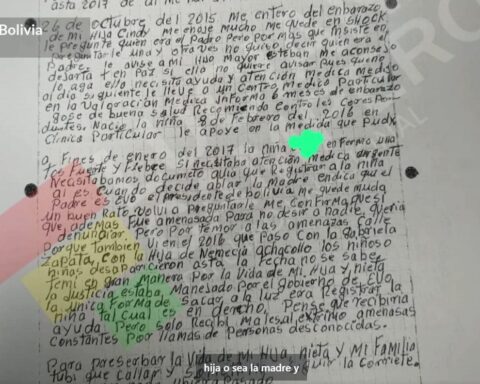 Bolivia
asta 2017 de al
26 de octubre del 2015. Me entero del embarazo
de Mi Hija Cindy Me enoje Mucho Me quede en SHOCK
le pregunte quien era el Padre pero por mas que insiste en
preguntarle una y otra ves no quiso decir quien era el
Padre. le avise a Mi Hijo Mayor esteban Me aconsejo
dejarta en Paz si ello no quiere avisar pues que no
lo aga ello necesita ayuda y atención Medica Medijo
al dia siguiente le lleve a un Centro Medico Particular
en la Valoración Medica informa 6 meses de embarazo
gose de buena salud Recomienda Controles Corespon
dientes. Nacio la niña 8 de Febrero del 2016 en
Clinica Particular le apoye en la Medida que pude
a Fines de enero del 2017 la niña enfermo una
tos Fuerte y Fiebre Si necesitaba atención Medica urgente
Necesitabamos documeto alia que Registrar a la niña
al es. Cuando decide ablar la Madre endica que el
Padre es evo el presidente de bolivia Me quede muda
un buen Rato Volvi a preguntarle Me confirma que si
que ademas Fue amenasada Para no desir a nadie queria
denunciar Pero por temor a las amenazas Calle
Porque tambien Vi en el 2016 que Paso con la Gabriela
Zapata, con Hija de Nemecia achacollo los niñoso
niñas desaparcieron asta fecha no se sabe
temi en gran Manera Por la Vida de Mi Hija y nieta
la justicia estaba Manesado Por el Gobierno de ello
la unica Forma de sacar a la luz era registrar la
niña tal cual es en derecho, Pense que recibiria
ayuda, Pero solo Recibi Malesal extremo amenasas
constantes Por llamas de Personas desconosidas.
Para preserbar la Vida de Mi Hija, nieta y Mi Familia
tubi que callar y
hija o sea la madre y